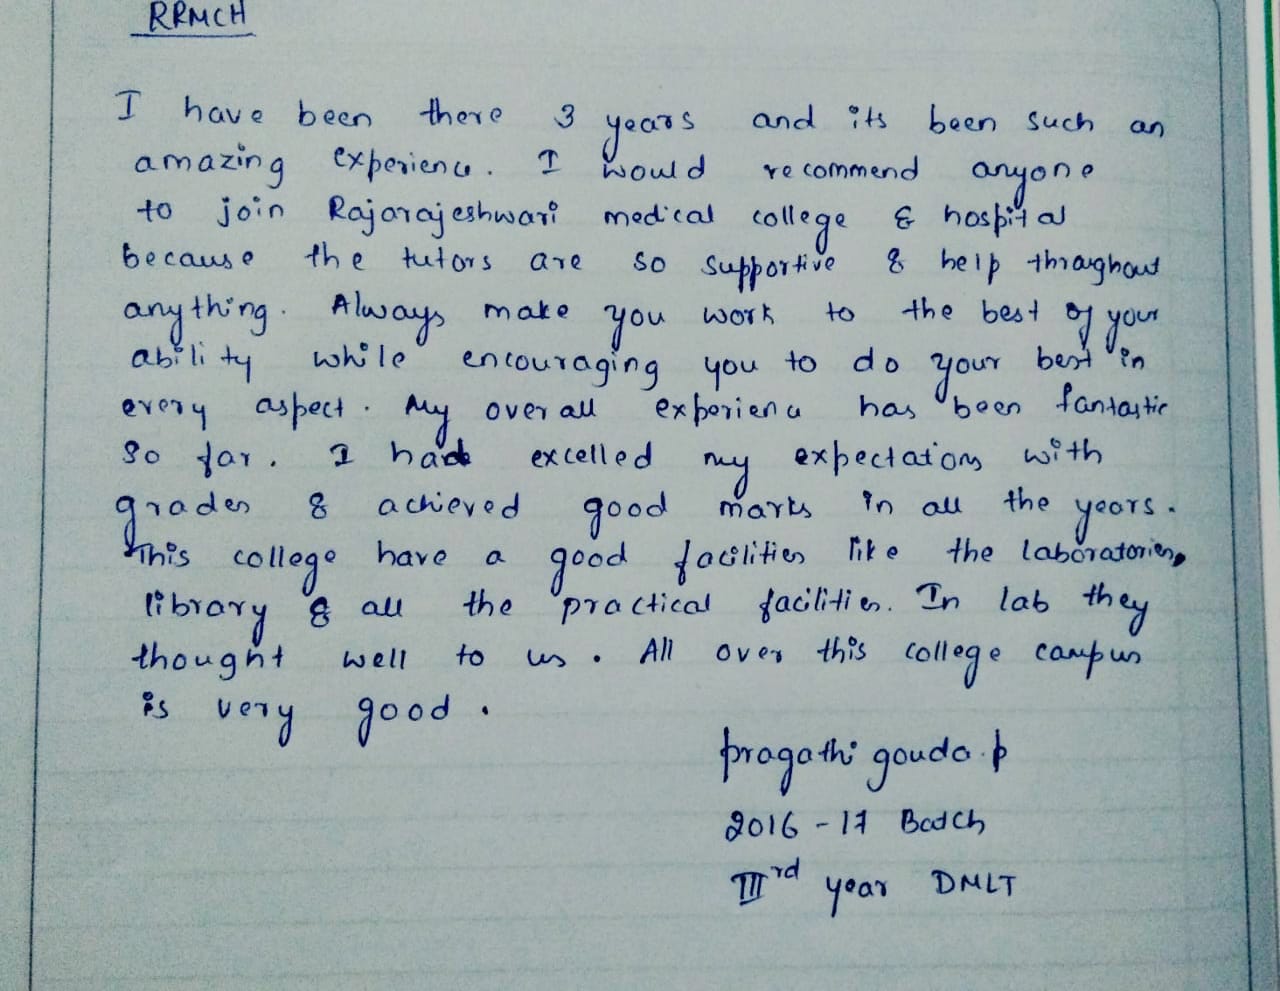 RRMCH
I have been there 3 years and its been such an
amazing experience. I would recommend anyone
to join Rajarajeshwari medical college & hospital
because the tutors are so supportive & help throughout
anything. Always make you work to the best of your
ability while encouraging you to do your best in
every aspect. My overall experience has been fantastic
so far. I had excelled my expectations with
grades & achieved good marks in all the years.
This college have a good facilities like the laboratories,
library & all the practical facilities. In lab they
thought well to us. All over this college campus
is very good.
pragathi gouda.p
2016-17 Batch
IIIrd year DMLT